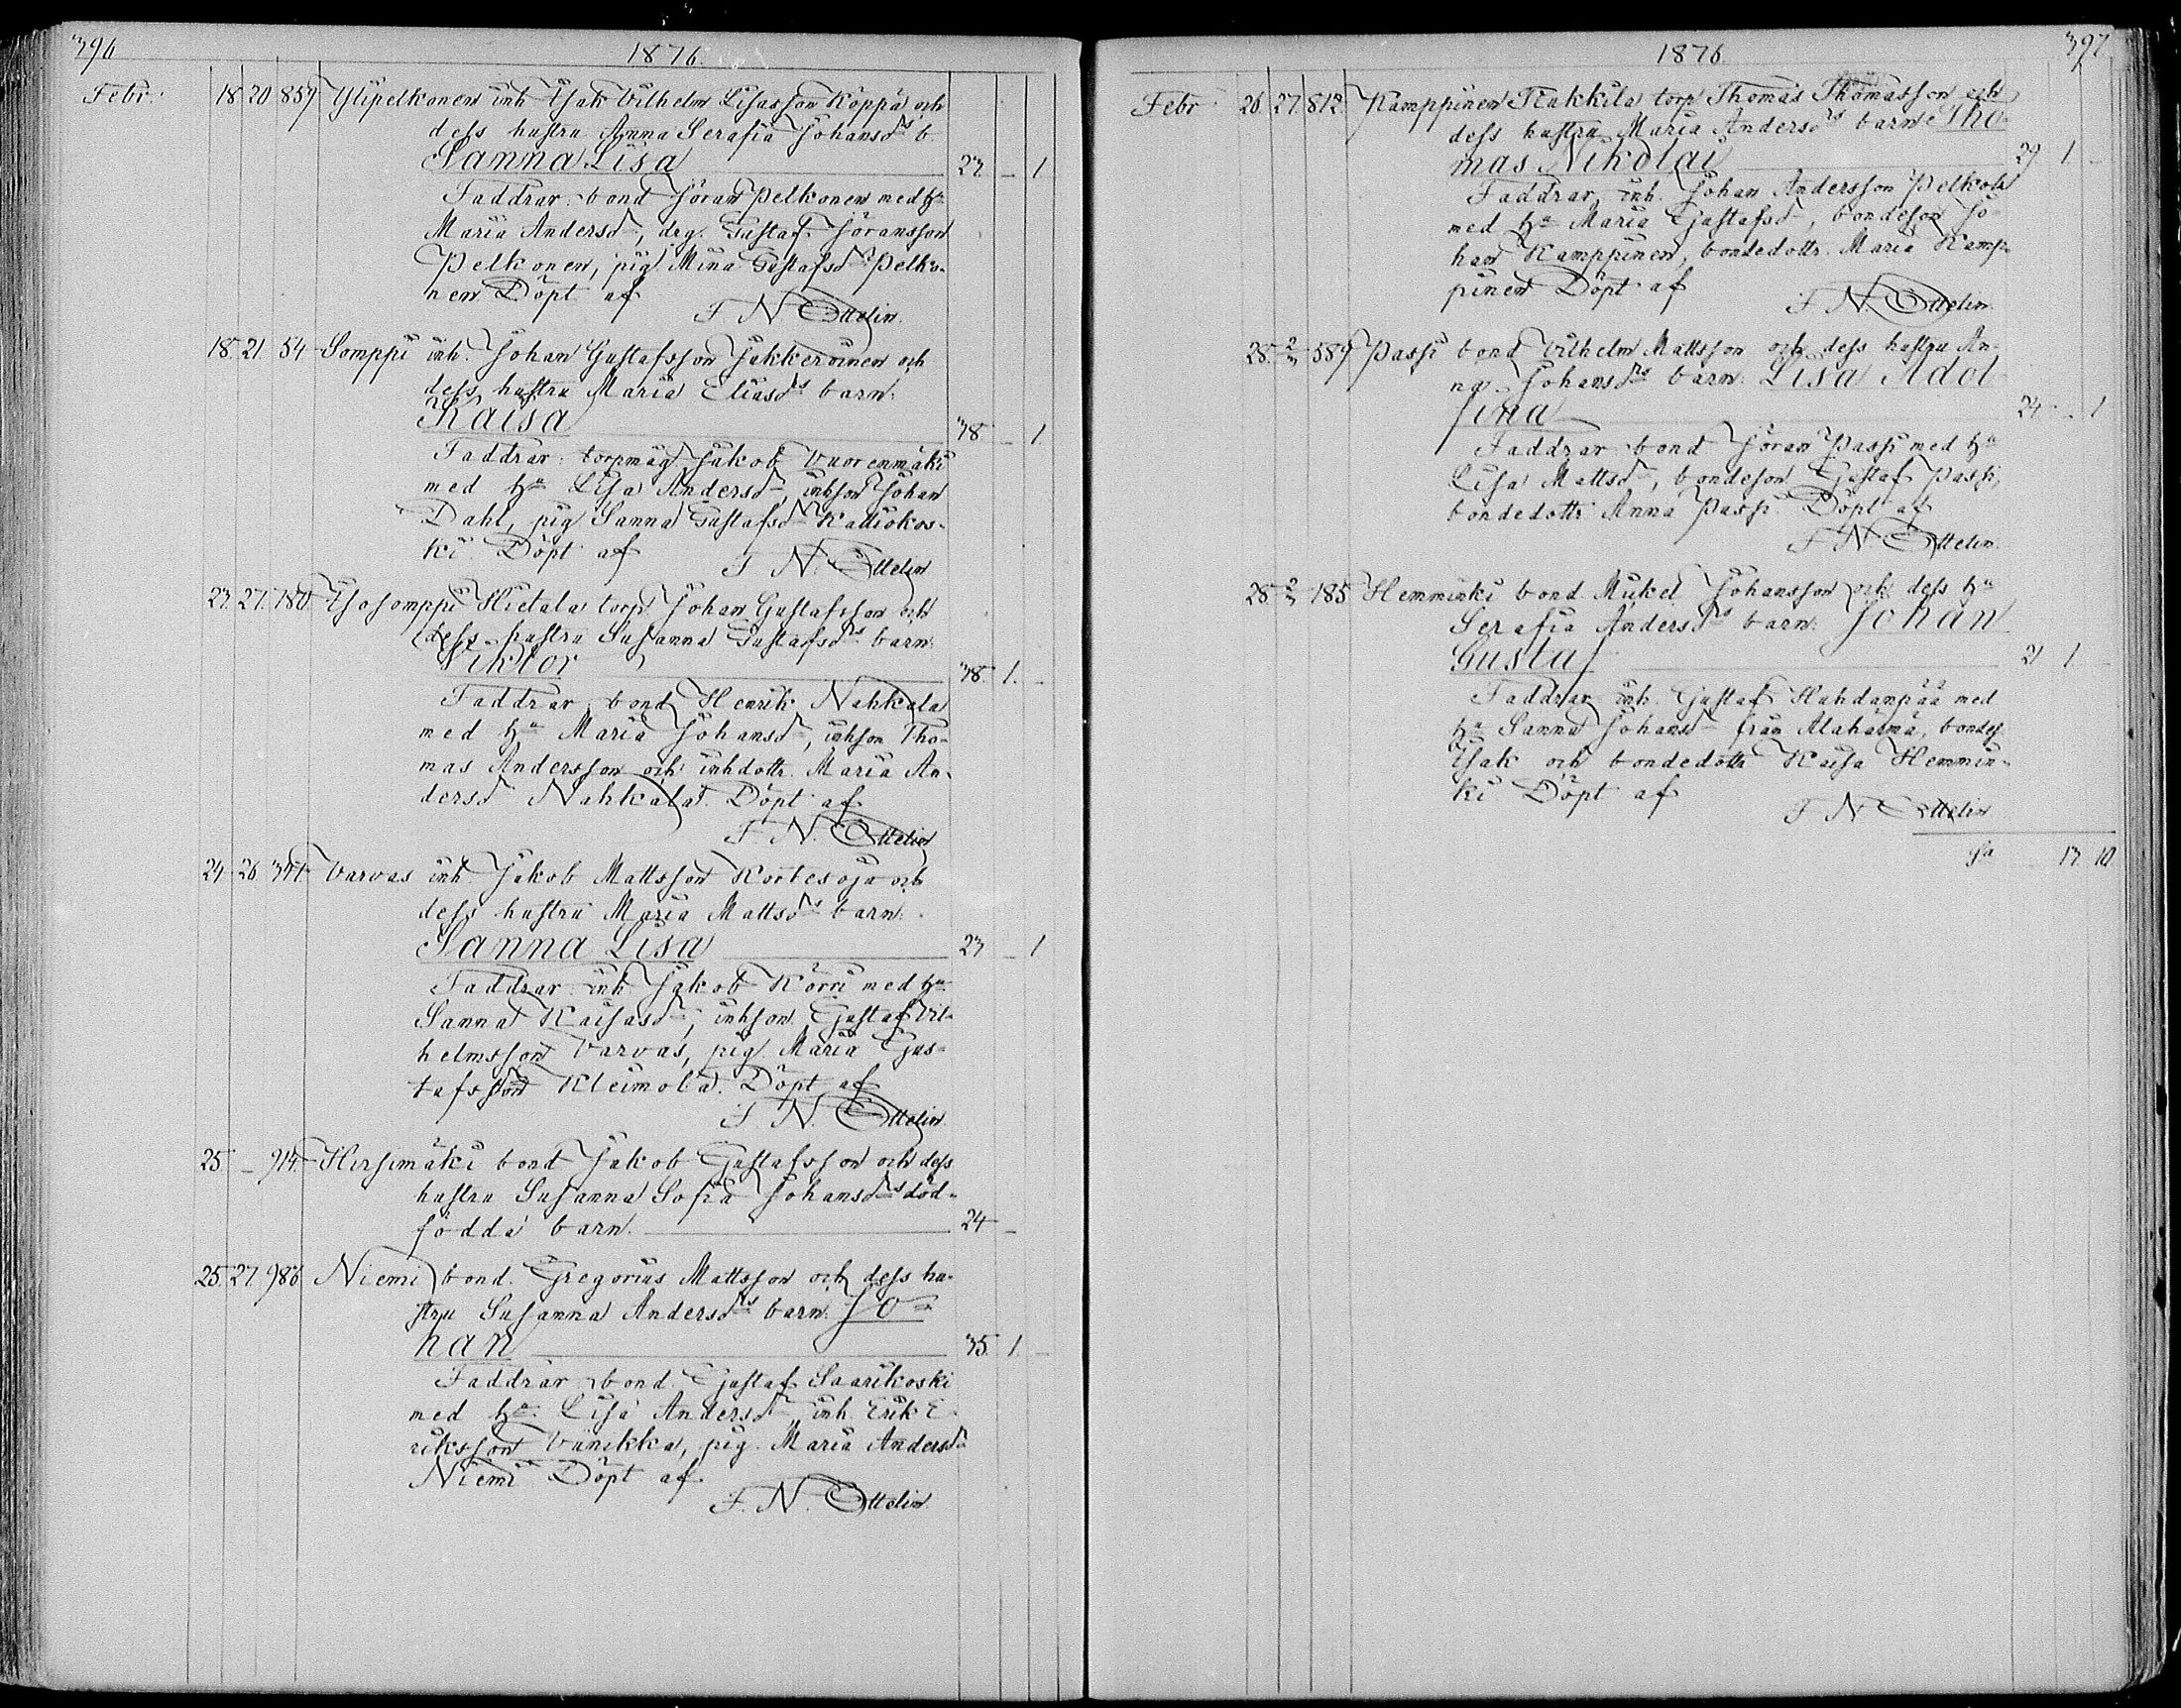 396
1876.
Febr. 18 20 859 Ylipelkonen inh Isak Vilhelm Lisasson Köppä och
dess hustru Anna Serafia Johansdrs b.
Sanna Lisa 23 - 1
Faddrar: bond Jöran Pelkonen med hu
Maria Andersdr, drg. Gustaf Göransson
Pelkonen, pig. Mina Gustafsdr Pelko-
nen Döpt af
F N Ottelin.
18. 21 54 Somppi inh. Johan Gustafsson Jakkeroinen och
dess hustru Maria Eliasdrs barn:
Kaisa 38 - 1
Faddrar: torpmåg Jakob Vuorenmäki
med hu Lisa Andersdr, inhson Johan
Dahl, pig Sanna Gustafsdr Kattiokos-
ki Döpt af
F N. Ottelin
23. 27. 780. Isosomppi Hietala torp Johan Gustafsson och
dess hustru Susanna Gustafsdrs barn:
Viktor 38. 1. -
Faddrar bond Henrik Nahkala
med hu Maria Johansdr, inhson Tho-
mas Andersson och inhdottr. Maria An-
dersd Nahkala. Döpt af
F. N. Ottelin
24 26 Varvas inh. Jakob Mattsson Kortesoja och
dess hustru Maria Mattsdrs barn:
Sanna Lisa 23 - 1
Faddrar inh Jakob Körri med hu
Sanna Kaisasdr, inhson. Gustaf Vil-
helmsson Varvas, pig. Maria Gus-
tafsson Kleimola. Döpt af
F. N. Ottelin
25 - 914. Hirsimäki bond Jakob Gustafsson och dess
hustru Susanna Sofia Johansdrs död-
födda barn. 24 -
25. 27. 986 Niemi bond. Gregorius Mattsson och dess hu-
stru Susanna Andersdrs barn: Jo-
han 35. 1. -
Faddrar bond. Gustaf Saarikoski
med hu. Lisa Andersdr inh. Erik E-
riksson Vänikka, pig. Maria Andersdr
Niemi Döpt af.
F. N. Ottelin.
1876. 397
Febr. 26. 27. 812. Kamppinen Raukkila torp Thomas Thomasson och
dess hustru Maria Andersdrs barn: Tho-
mas Nikolai 29 1. -
Faddrar inh. Johan Andersson Pelkola
med hu Maria Gustafsdr, bondeson Jo-
han Kamppinen, bondedottr. Maria Kamp-
pinen Döpt af
F. N. Ottelin.
28. 2/3 589 Passi bond Vilhelm Mattsson och dess hustru An-
na Johansdrs barn: Lisa Adol-
fina 24 - 1
Faddrar bond Jöran Passi med hu
Lisa Mattsdr, bondeson Gustaf Passi,
bondedottr Anna Passi Döpt af
F N. Ottelin.
28. 2/3 185 Hemminki bond. Mikel Johansson och dess hu
Serafia Andersdrs barn: Johan
Gustaf 21 1 -
Faddrar inh. Gustaf Huhdanpää med
hu Sanna Johansdr från Alahärmä, bondes.
Isak och bondedottr Kaisa Hemmin-
ki Döpt af
F N Ottelin
Sa 13. 10.